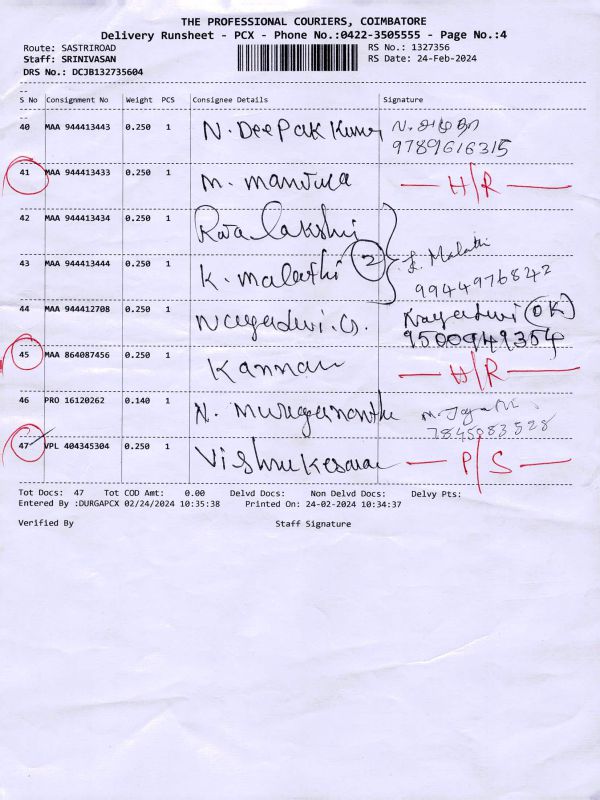 THE PROFESSIONAL COURIERS, COIMBATORE
Delivery Runsheet - PCX - Phone No.:0422-3505555 - Page No.:4
Route: SASTRIROAD RS No.: 1327356
Staff: SRINIVASAN RS Date: 24-Feb-2024
DRS No.: DCJB132735604
S No Consignment No Weight PCS Consignee Details Signature
40 MAA 944413443 0.250 1 N. Deepak Kumar
9789616315
41 MAA 944413433 0.250 1 M. Manjula H/R
42 MAA 944413434 0.250 1 Rajalakshmi
43 MAA 944413444 0.250 1 K. Malathi 2 Malathi
9944976842
44 MAA 944412708 0.250 1 Nagadevi. G. Nagadevi OK
9500949354
45 MAA 864087456 0.250 1 Kannan H/R
46 PRO 16120262 0.140 1 N. Muruganantha
7845083528
47 VPL 404345304 0.250 1 P/S
Tot Docs: 47 Tot COD Amt: 0.00 Delvd Docs: Non Delvd Docs: Delvy Pts:
Entered By :DURGAPCX 02/24/2024 10:35:38 Printed On: 24-02-2024 10:34:37
Verified By Staff Signature